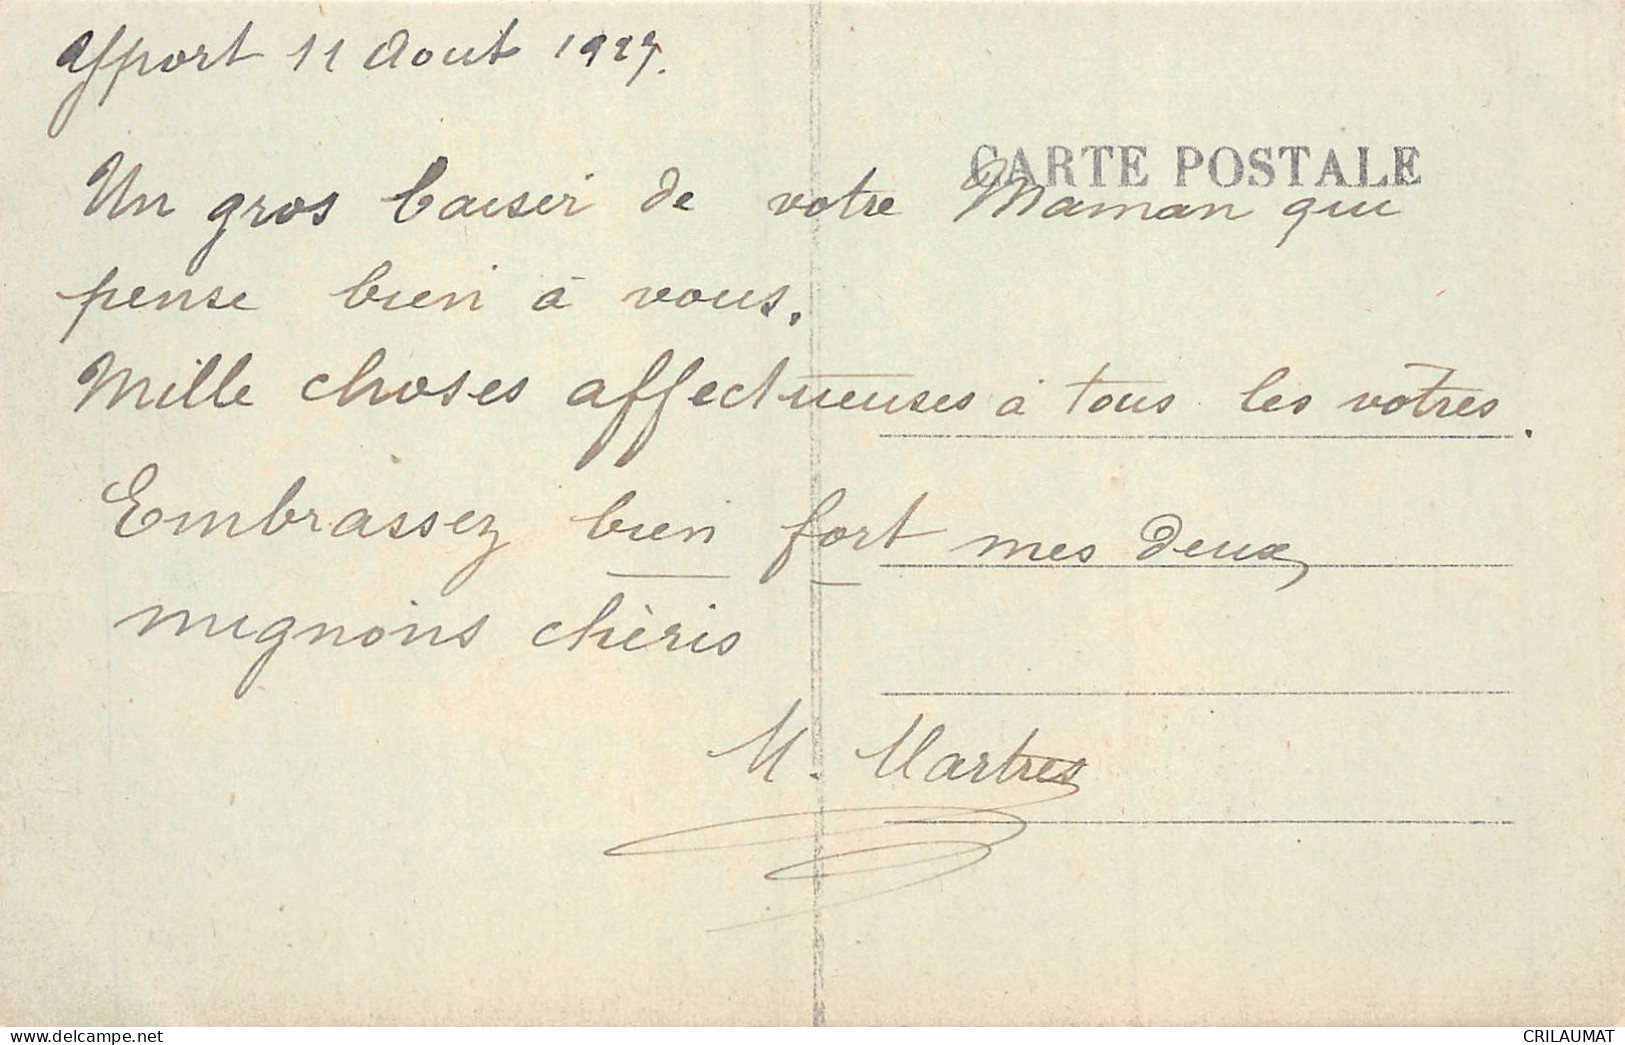 11 Aout 1927.
CARTE POSTALE
Un gros baiser de votre Maman qui
pense bien à vous.
Mille choses affectueuses à tous les votres.
Embrassez bien fort mes deux
mignons chèris
M. Martres
CRILAUMAT